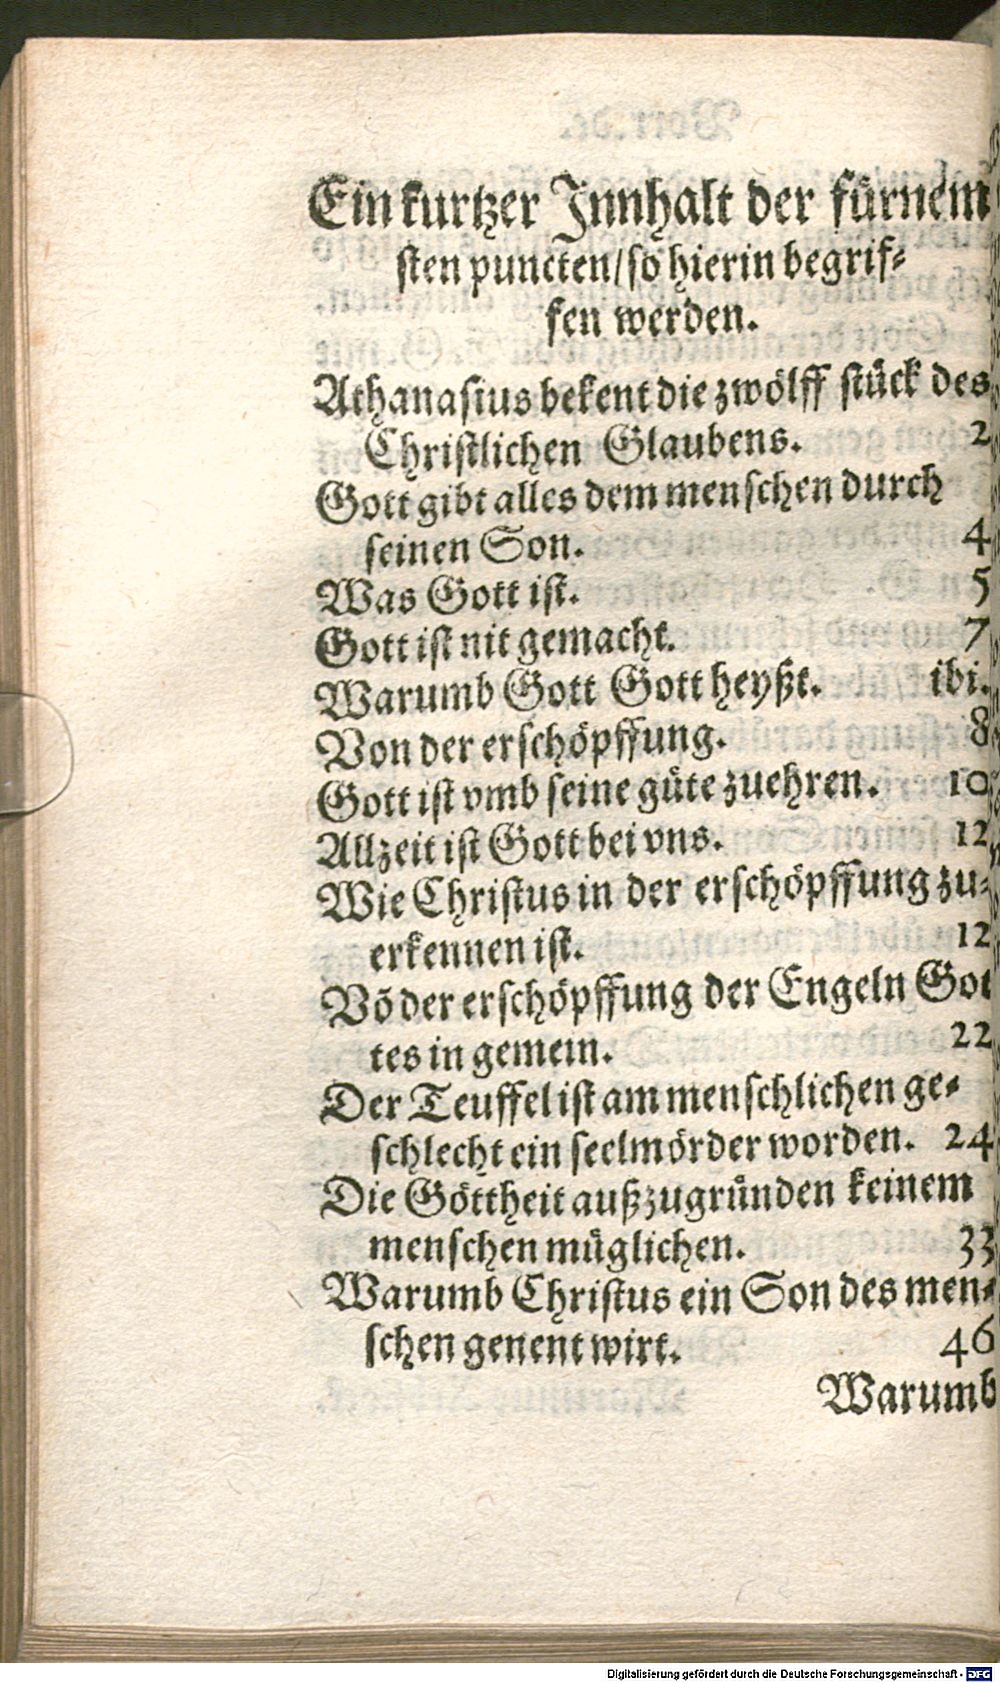 Ein kurtzer Innhalt der fürnem
sten puncten/so hierin begrif⸗
fen werden.
Athanasius bekent die zwölff stück des
Christlichen Glaubens. 2
Gott gibt alles dem menschen durch
seinen Son. 4
Was Gott ist. 5
Gott ist nit gemacht. 7
Warumb Gott Gott heyßt. ibi.
Von der erschöpffung. 8
Gott ist vmb seine güte zuehren. 10
Allzeit ist Gott bei vns. 12
Wie Christus in der erschöpffung zu⸗
erkennen ist. 12
Võ der erschöpffung der Engeln Got
tes in gemein. 22
Der Teuffel ist am menschlichen ge⸗
schlecht ein seelmörder worden. 24
Die Göttheit außzugründen keinem
menschen müglichen. 33
Warumb Christus ein Son des men⸗
schen genent wirt. 46
Warumb
Digitalisierung gefördert durch die Deutsche Forschungsgemeinschaft - DFG